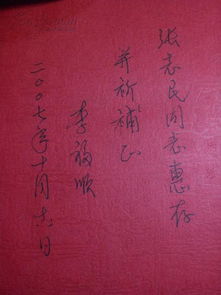 张志民同志惠存
并祈補正
李福顺
二〇〇七年十月六日